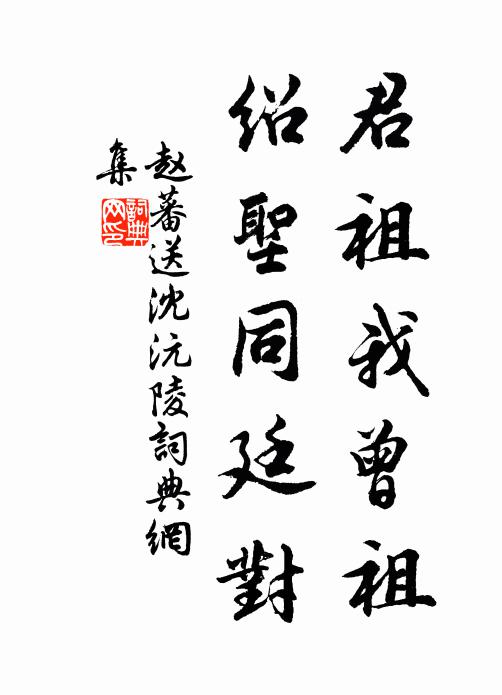 君祖我曾祖
绍聖同廷對
赵蕃送沈沅陵詞典網
集
詞典
网印